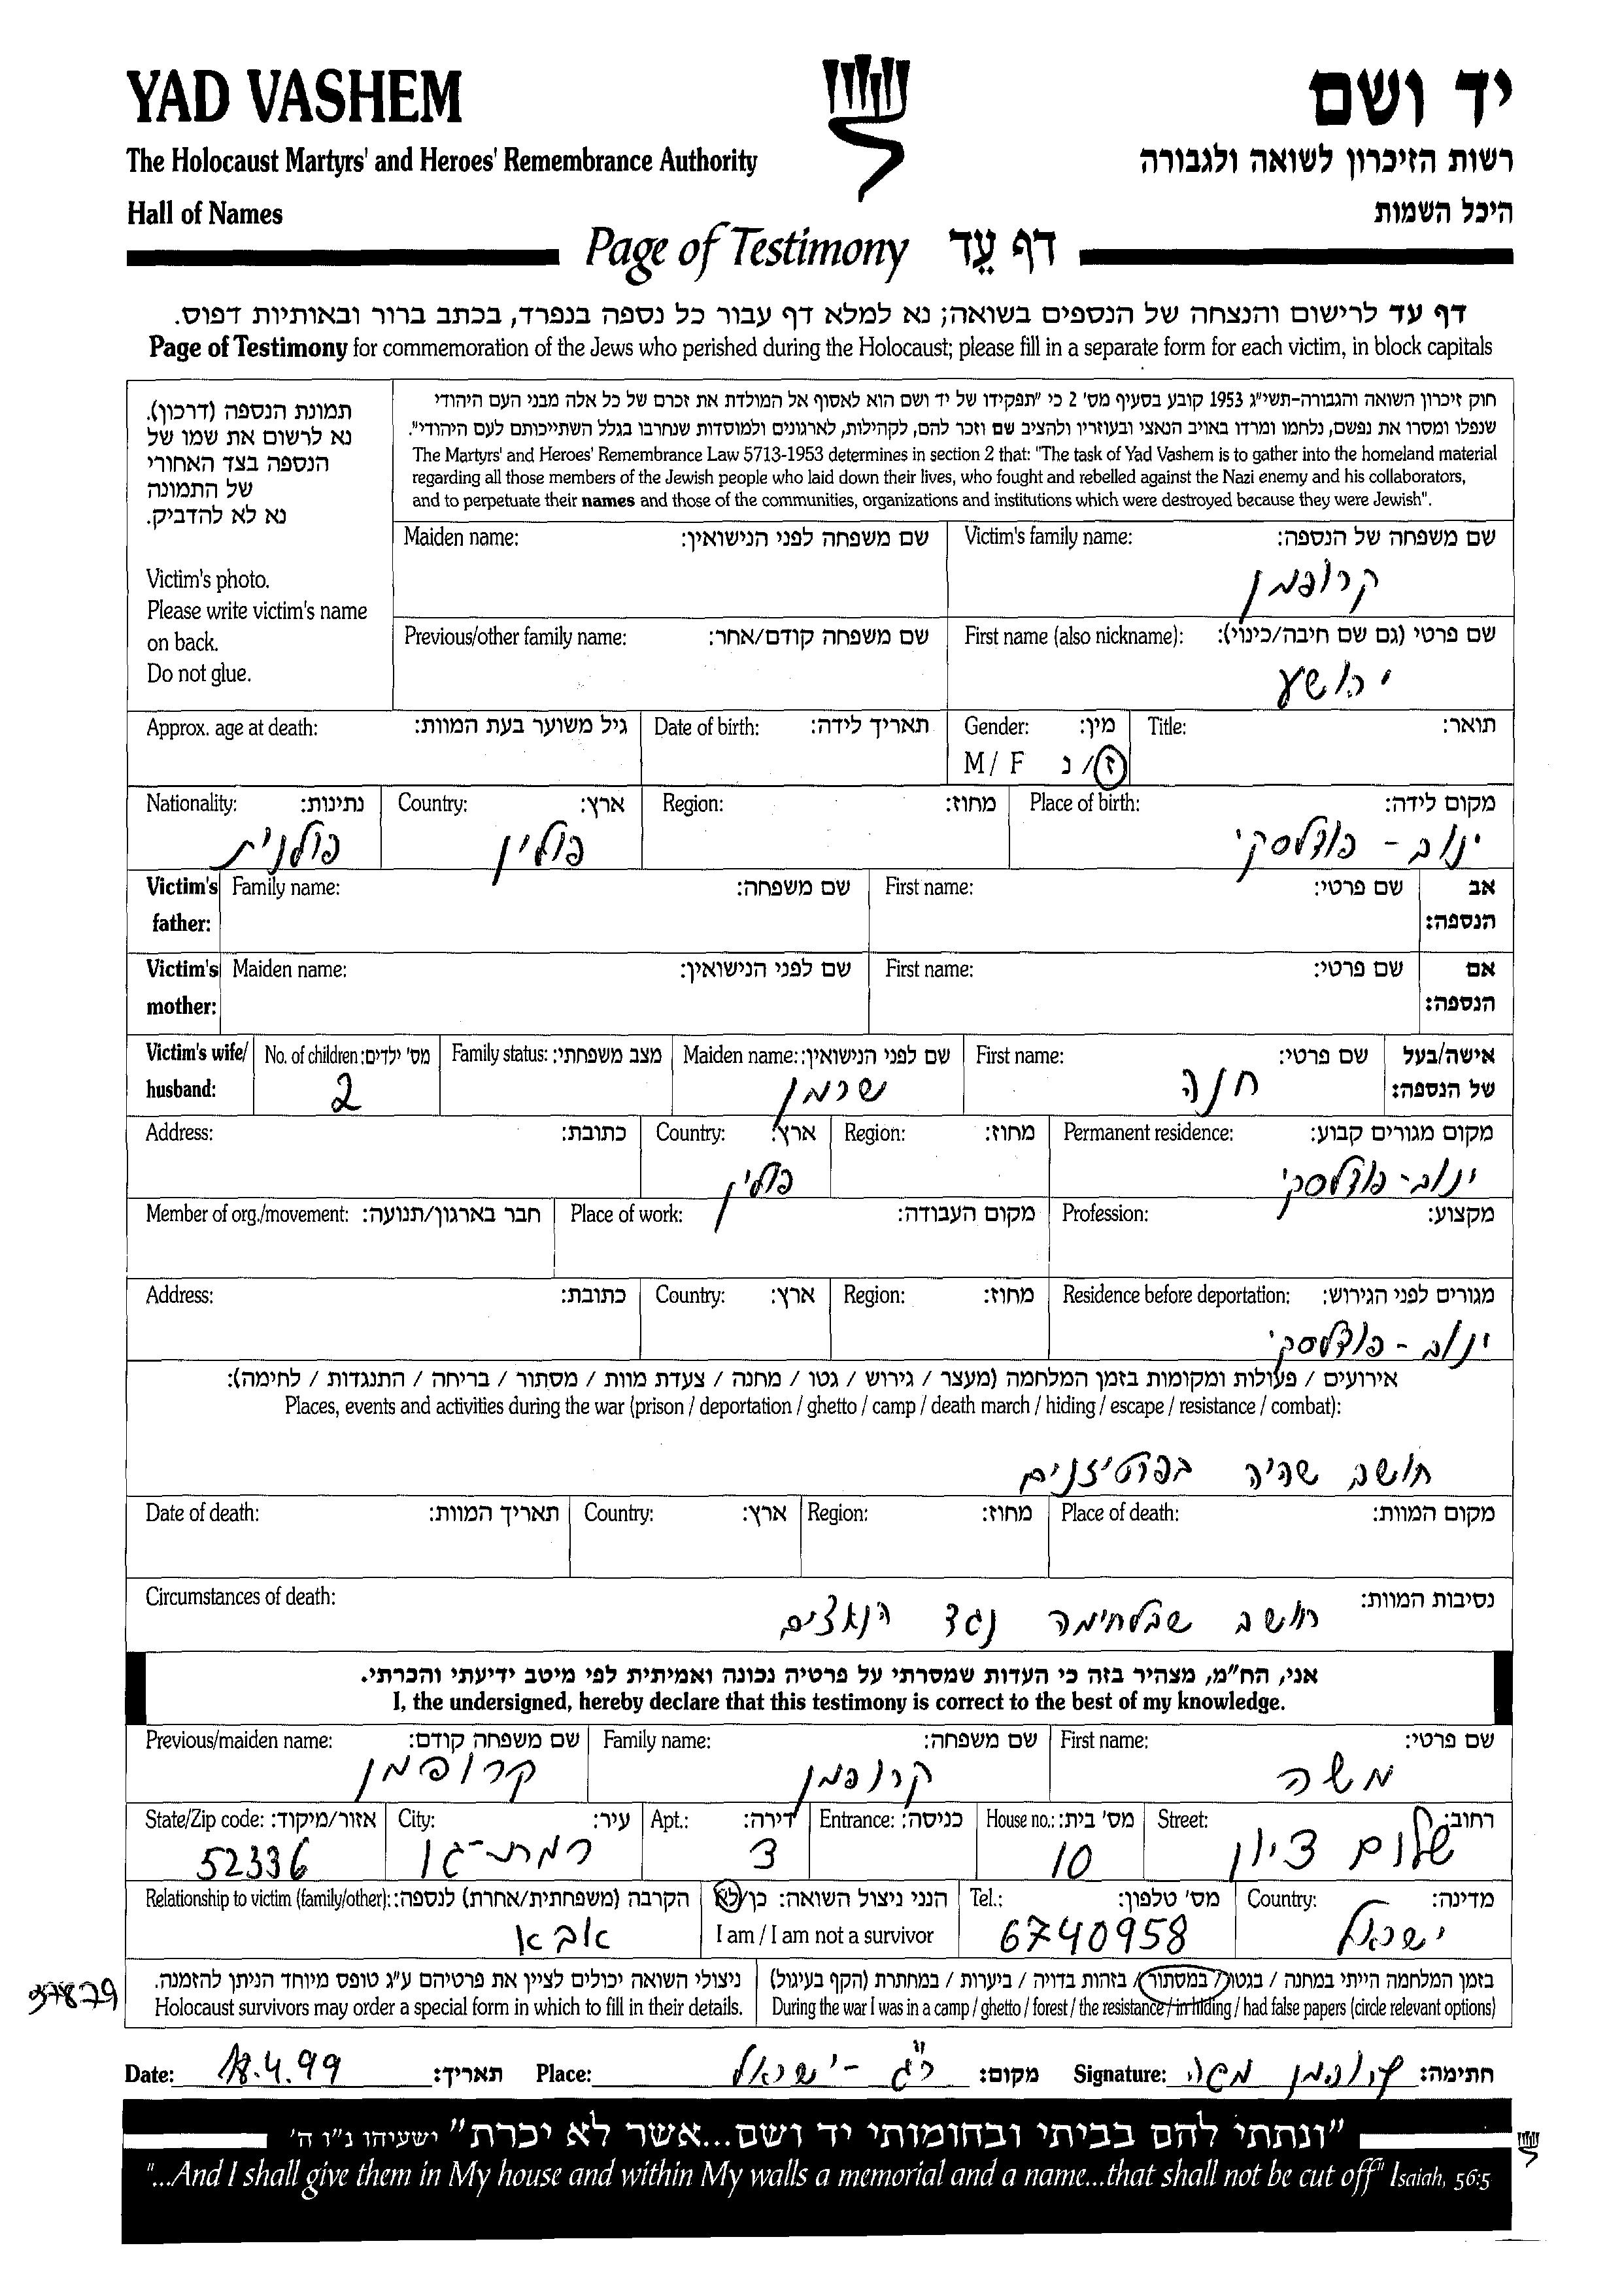 YAD VASHEM
יד ושם
The Holocaust Martyrs' and Heroes' Remembrance Authority
רשות הזיכרון לשואה ולגבורה
Hall of Names
היכל השמות
Page of Testimony דף עֵד
דף עד לרישום והנצחה של הנספים בשואה; נא למלא דף עבור כל נספה בנפרד, בכתב ברור ובאותיות דפוס.
Page of Testimony for commemoration of the Jews who perished during the Holocaust; please fill in a separate form for each victim, in block capitals
חוק זיכרון השואה והגבורה-תשי"ג 1953 קובע בסעיף מס' 2 כי "תפקידו של יד ושם הוא לאסוף אל המולדת את זכרם של כל אלה מבני העם היהודי
שנפלו ומסרו את נפשם, נלחמו ומרדו באויב הנאצי ובעוזריו ולהציב שם וזכר להם, לקהילות, לארגונים ולמוסדות שנחרבו בגלל השתייכותם לעם היהודי".
The Martyrs' and Heroes' Remembrance Law 5713-1953 determines in section 2 that: "The task of Yad Vashem is to gather into the homeland material
regarding all those members of the Jewish people who laid down their lives, who fought and rebelled against the Nazi enemy and his collaborators,
and to perpetuate their names and those of the communities, organizations and institutions which were destroyed because they were Jewish".
תמונת הנספה (דרכון).
נא לרשום את שמו של
הנספה בצד האחורי
של התמונה
נא לא להדביק.
Victim's photo.
Please write victim's name
on back.
Do not glue.
Victim's family name: שם משפחה של הנספה:
קרופמן
Maiden name: שם משפחה לפני הנישואין:
First name (also nickname): שם פרטי (גם שם חיבה/כינוי):
יהושע
Previous/other family name: שם משפחה קודם/אחר:
Title: תואר:
Gender: מין:
M / F ז/נ
Date of birth: תאריך לידה:
Approx. age at death: גיל משוער בעת המוות:
Place of birth: מקום לידה:
ינוב - פודלסקי
Region: מחוז:
Country: ארץ:
פולין
Nationality: נתינות:
פולנית
אב הנספה:
First name: שם פרטי:
Family name: שם משפחה:
Victim's father:
אם הנספה:
First name: שם פרטי:
Maiden name: שם לפני הנישואין:
Victim's mother:
אישה/בעל של הנספה:
First name: שם פרטי:
חנה
Maiden name: שם לפני הנישואין:
שרמן
Family status: מצב משפחתי:
No. of children: מס' ילדים:
2
Victim's wife/ husband:
Permanent residence: מקום מגורים קבוע:
ינוב - פודלסקי
Region: מחוז:
Country: ארץ:
פולין
Address: כתובת:
Profession: מקצוע:
Place of work: מקום העבודה:
Member of org./movement: חבר בארגון/תנועה:
Residence before deportation: מגורים לפני הגירוש:
ינוב - פודלסקי
Region: מחוז:
Country: ארץ:
Address: כתובת:
אירועים / פעולות ומקומות בזמן המלחמה (מעצר / גירוש / גטו / מחנה / צעדת מוות / מסתור / בריחה / התנגדות / לחימה):
Places, events and activities during the war (prison / deportation / ghetto / camp / death march / hiding / escape / resistance / combat):
חושב שהיה בפרטיזנים
Place of death: מקום המוות:
Region: מחוז:
Country: ארץ:
Date of death: תאריך המוות:
Circumstances of death: נסיבות המוות:
חושב שבלחימה נגד הנאצים
אני, הח"מ, מצהיר בזה כי העדות שמסרתי על פרטיה נכונה ואמיתית לפי מיטב ידיעתי והכרתי.
I, the undersigned, hereby declare that this testimony is correct to the best of my knowledge.
First name: שם פרטי:
משה
Family name: שם משפחה:
קרופמן
Previous/maiden name: שם משפחה קודם:
קרופמן
Street: רחוב:
שלום ציון
House no.: מס' בית:
10
Entrance: כניסה:
Apt.: דירה:
3
City: עיר:
רמת-גן
State/Zip code: אזור/מיקוד:
52336
Country: מדינה:
ישראל
Tel.: מס' טלפון:
6740958
הנני ניצול השואה: כן/לא
I am / I am not a survivor
Relationship to victim (family/other): הקרבה (משפחתית/אחרת) לנספה:
אבא
בזמן המלחמה הייתי במחנה / בגטו / במסתור / בזהות בדויה / ביערות / במחתרת (הקף בעיגול)
During the war I was in a camp / ghetto / forest / the resistance / in hiding / had false papers (circle relevant options)
ניצולי השואה יכולים לציין את פרטיהם ע"ג טופס מיוחד הניתן להזמנה.
Holocaust survivors may order a special form in which to fill in their details.
Date: 18.4.99 תאריך: Place: ר"ג - ישראל מקום: Signature: קרופמן משה חתימה:
"ונתתי להם בביתי ובחומותי יד ושם...אשר לא יכרת" ישעיהו נ"ו ה'
"...And I shall give them in My house and within My walls a memorial and a name...that shall not be cut off" Isaiah, 56:5